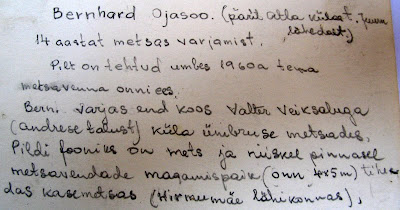 Bernhard Ojasoo. (pärit Atla külast, Juuru
lähedast)
14 aastat metsas varjamist.
Pilt on tehtud umbes 1960a tema
metsavenna onni ees.
Berni varjas end koos Valter Veiksaluga
(andrese talust) küla ümbruse metsades.
Pildi fooniks on mets ja niiskel pinnasel
metsavendade magamispaik (onn 4x5m) tihe-
das kasemetsas (Hirmumäe lähikonnas),